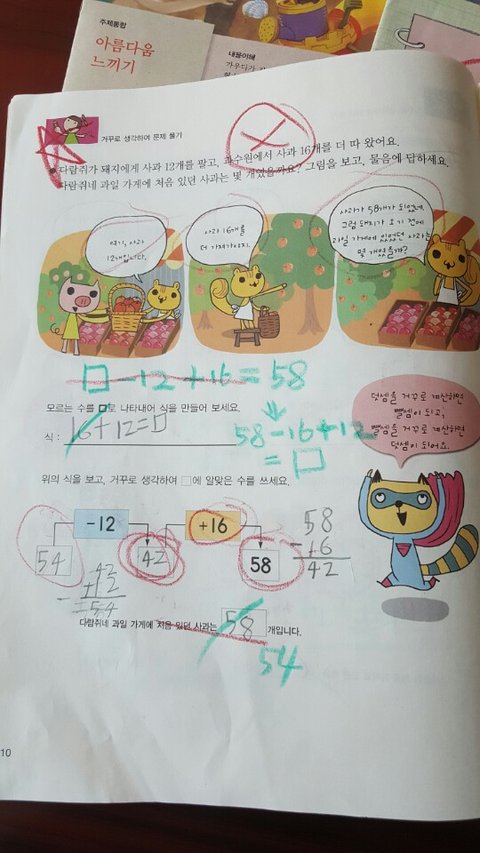 주제통합
아름다움
느끼기
내용이해
거꾸로 생각하여 문제 풀기
다람쥐가 돼지에게 사과 12개를 팔고, 과수원에서 사과 16개를 더 따 왔어요.
다람쥐네 과일 가게에 처음 있던 사과는 몇 개였을까요? 그림을 보고, 물음에 답하세요.
여기, 사과
12개입니다.
사과 16개를
더 가져가야지.
사과가 58개가 되었네.
그럼 돼지가 오기 전에
과일 가게에 있었던 사과는
몇 개였을까?
□-12+16=58
모르는 수를 □로 나타내어 식을 만들어 보세요.
식 : 16+12=□
58-16+12
=□
덧셈을 거꾸로 계산하면
뺄셈이 되고,
뺄셈을 거꾸로 계산하면
덧셈이 되어요.
위의 식을 보고, 거꾸로 생각하여 □에 알맞은 수를 쓰세요.
-12
+16
54
42
58
58
-16
42
42
+12
=54
다람쥐네 과일 가게에 처음 있던 사과는 58 개입니다.
54
10